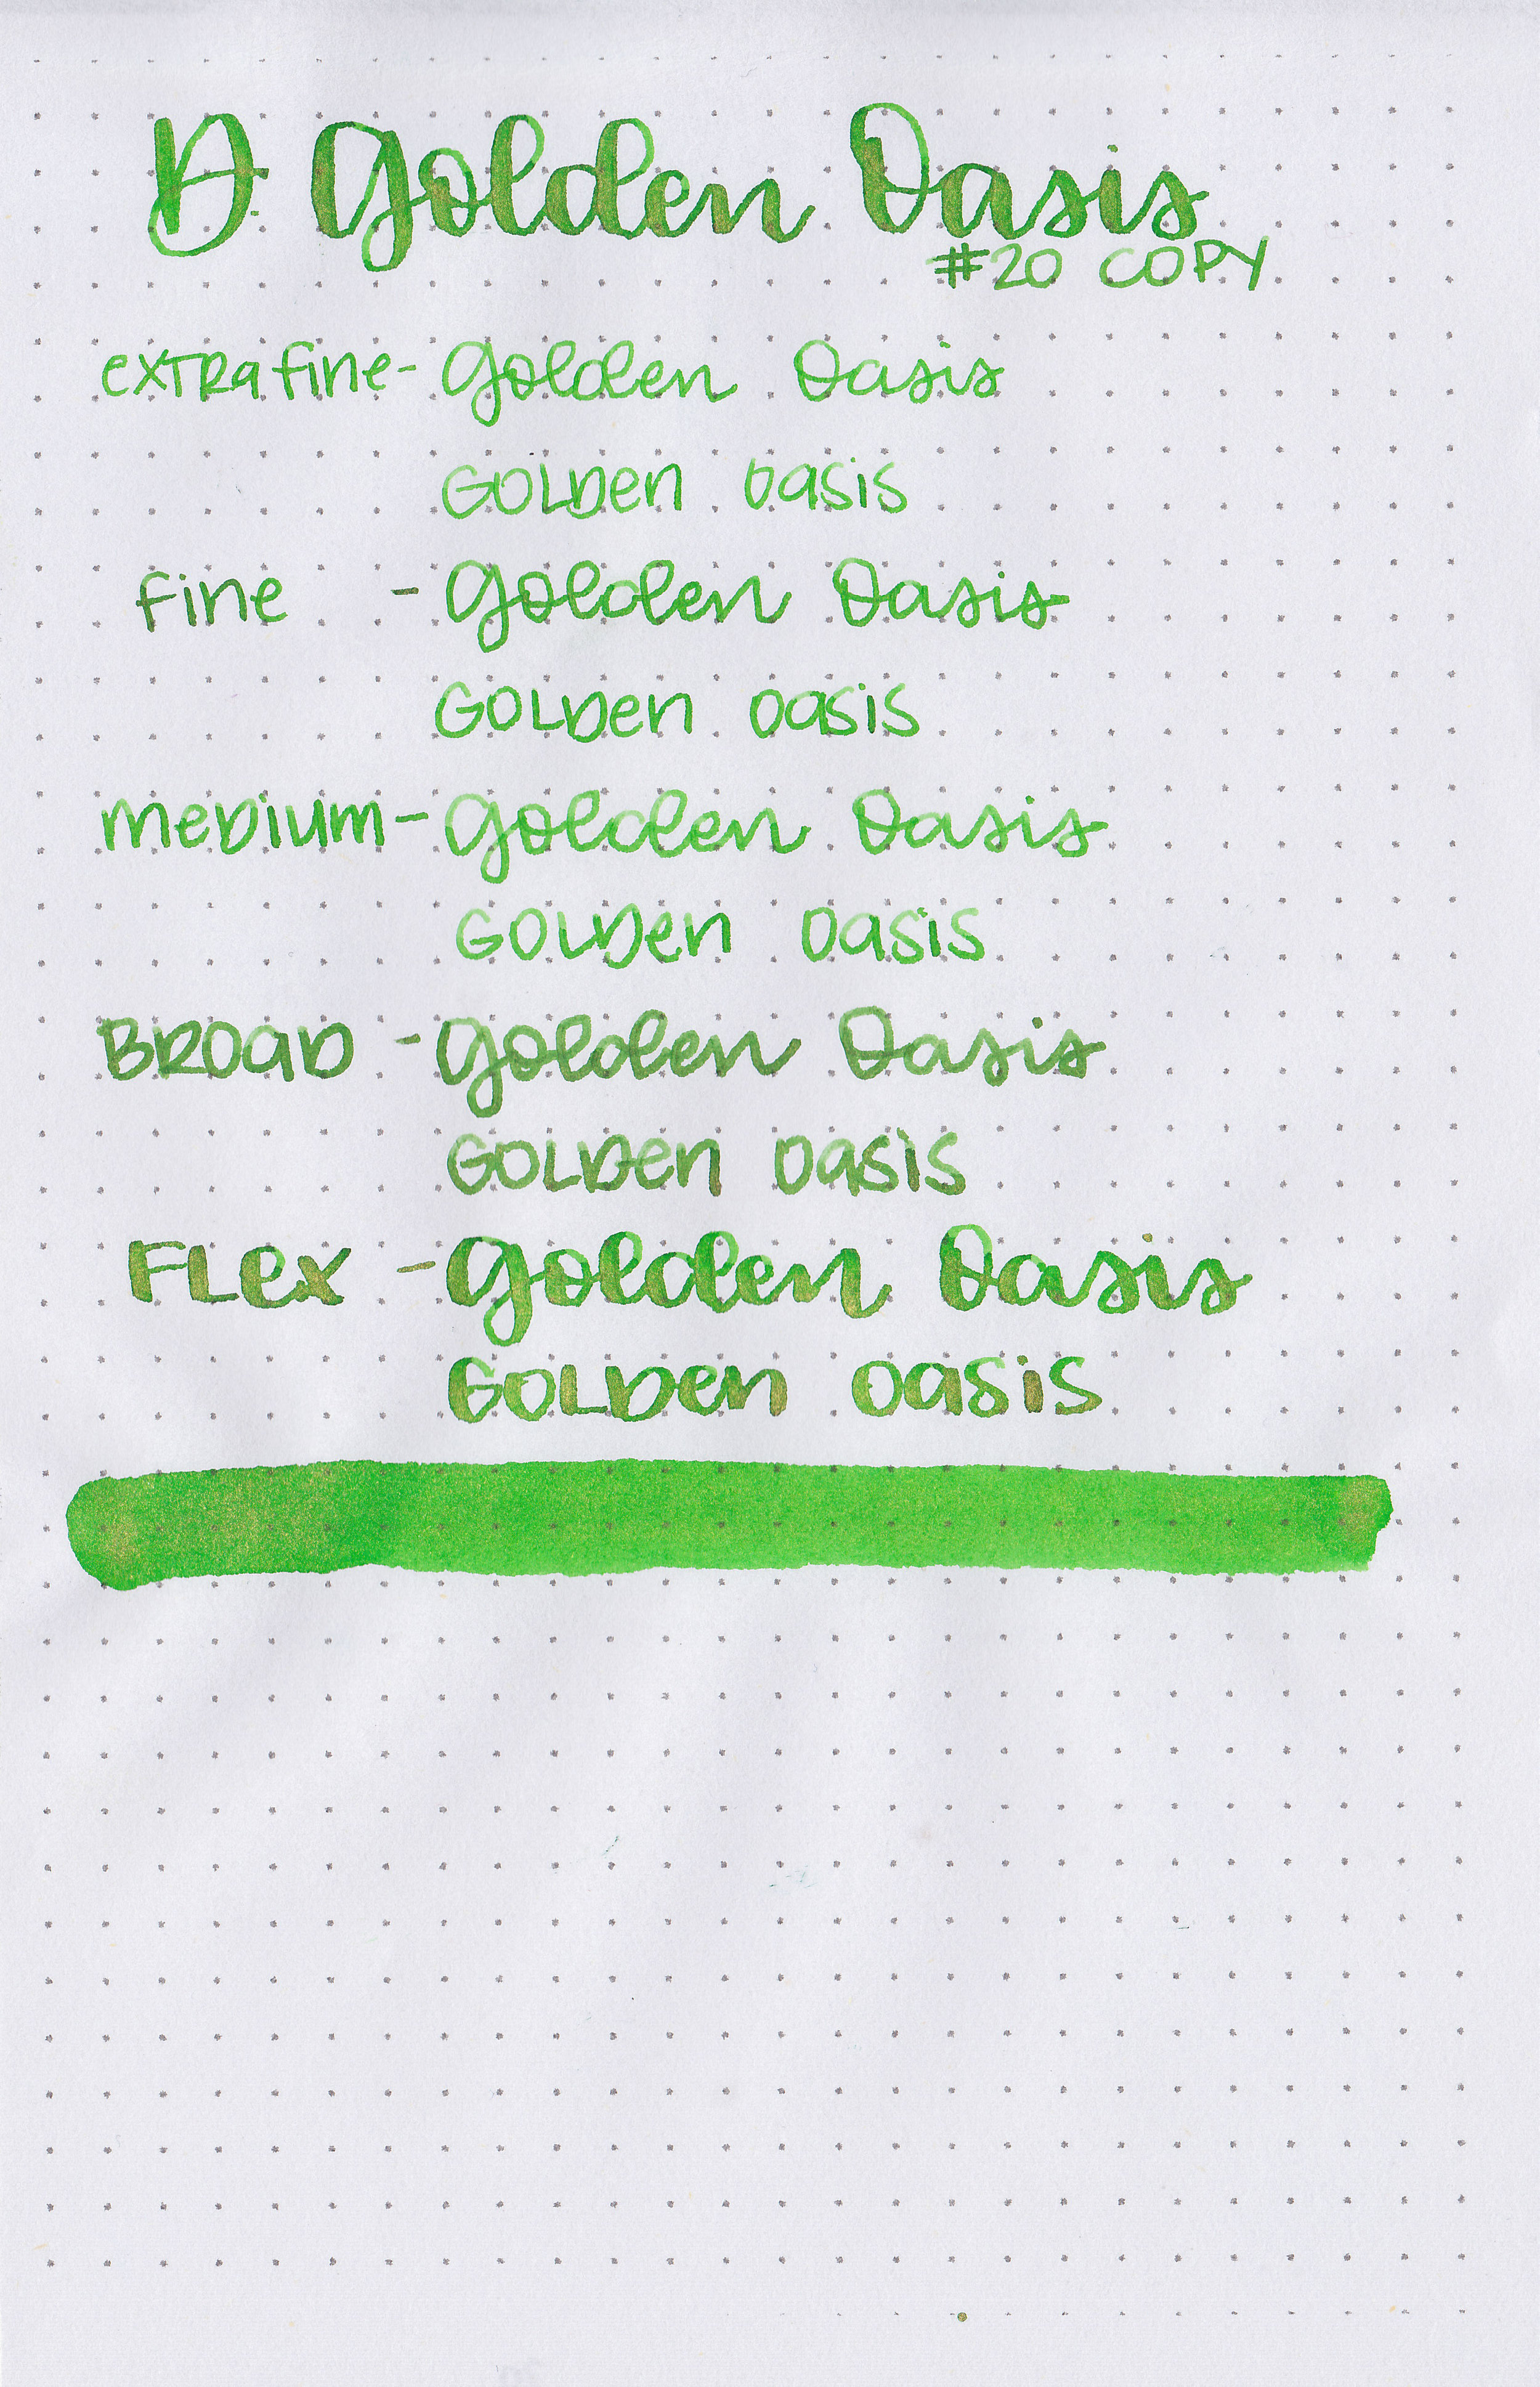 D Golden Oasis
#20 COPY
extra fine - Golden Oasis
GOLDen Oasis
fine - Golden Oasis
GOLDen Oasis
meDium - Golden Oasis
GOLDen Oasis
BROaD - Golden Oasis
GOLDen Oasis
FLex - Golden Oasis
GOLDen Oasis